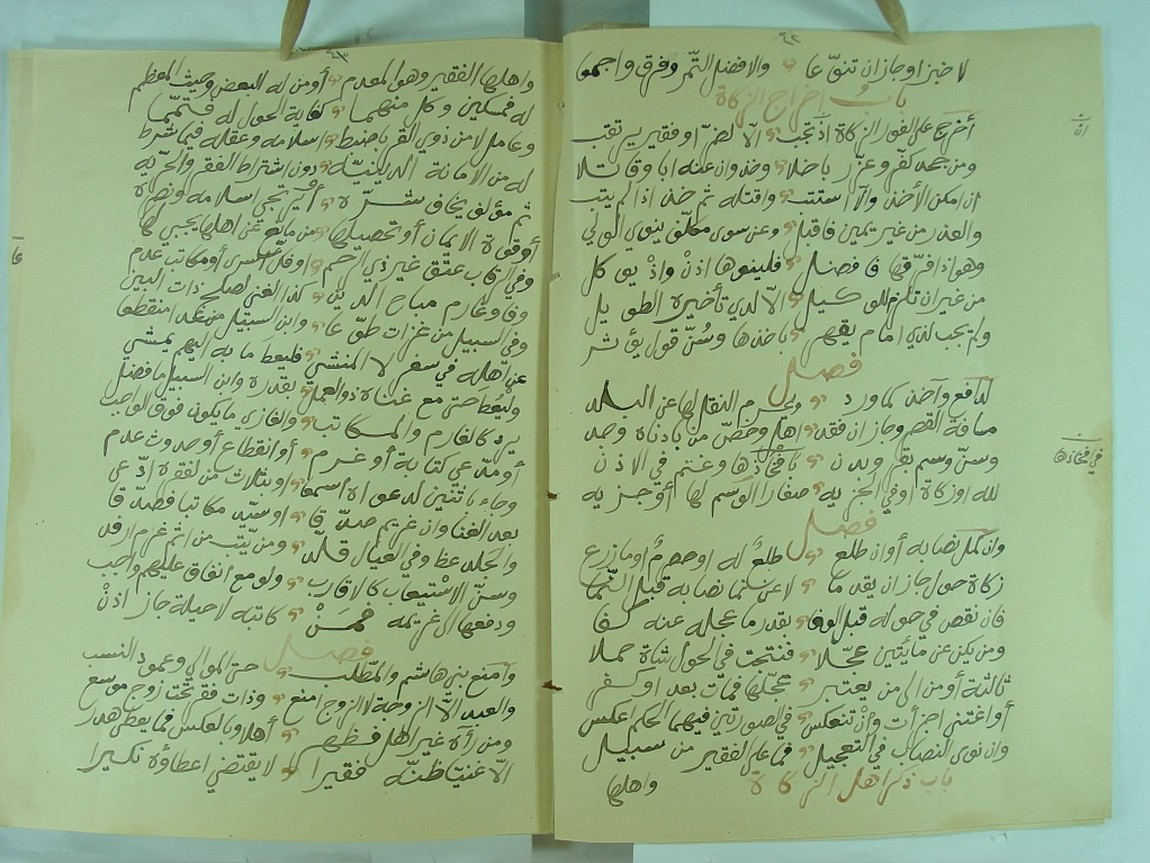 ٤٢
لا خبزا وجاز ان تنوّعا والافضل التّمر وفرق واجمعا
باب إخراج الزكاة
أخرج على الفور الزكاة اذ تجب الّا لضرّ او فقير يرتقب
ومن جحد كفّر وعزّر باخلا وخذ وان عنه ابا وقاتلا
ان امكن الأخذ والّا استتب واقتله ثم خذ اذا لم يتب
والعذر من غير يمين فاقبل وعن سوى مكلّف ينوي الولي
وهو اذا فرّقها فافضل فلينوها اذن واذ يوكل
من غير ان تلزم للوكيل الّا لدي تأخيره الطويل
ولم يجب لذي امام يقهر باخذها وسُنّ قول يؤثر
فصل
لدافع وآخذ كما ورد ويحرم النقل لها عن البلد
مسافة القصر وجاز ان فقد اهل وخصّ من بأدناه وجد
وسنّ وسم بقر وبدن بأفخاذها وغنم في الاذن
لله او زكاة او في الجزيه صغارا الوسم لها أو جزيه
فصل
وان كمل نصابه أو ان طلع طلعٌ له او حصرمٌ او ما زرع
زكاة حول جاز ان يقدما لا عن نما نصابه قبل النّما
فان نقص في حوله قبل الوفا بقدر ما عجله عنه كفا
ومن يكن عن مايتين عجّلا فنتجت في الحول شاة حملا
ثالثة أو من الى من يعتبر عجّلها فمات بعد او كفر
أو اغتنى اجزأت وان تنعكس في الصورتين فيهما الحكم اعكس
وان نوى النصاب في التعجيل فما على الفقير من سبيل
باب ذكر اهل الزكاة
واهلها
ان
في افخاذها
٤٣
واهلها الفقير وهو المعدم أو من له البعض وحيث المعظم
له فمسكين وكل منهما كفاية الحول له فتمّما
وعامل لا من ذوي القربى اضبط اسلامه وعقله فيما شرط
له من الامانة الدينيّه دون اشتراط الفقر والحرّيه
ثم مؤلف يخاف شرّه أو يرتجى اسلامه ونصره
أو قوة الايمان أو تحصيلها من مانع عن اهلها يجبي لها
وفي الرقاب عتق غير ذي الرحم او فكّ الأسرى أو مكاتب عدم
وفا وغارم مباح الدين كذا الغني لصلح ذات البين
وفي السبيل من غزات طوّعا وابن السبيل من غدا منقطعا
عن اهله في سفر لا المنشي فليعط ما به اليهم يمشي
وليُعط حتى مع غناه ذو العمل بقدره وابن السبيل ما فضل
يرد كالغارم والمكاتب والغازي ما يكون فوق الواجب
أو مدّعي كتابة أو غرم أو انقطاع أو حدوث عدم
وجاء باثنين لدعواه اسمعا او بثلاث من لفقره ادّعى
بعد الغنا وان غريم صدّقا او سيد مكاتبا فصدقا
والجلد عظ وفي العيال قلّد ومن يتب من اثم غرم ارفد
وسنّ الاستيعاب كالاقارب ولو مع انفاق عليهم واجب
ودفعها الى غريمه فمن كاتبه لا حيلة جاز اذن
فصل
وامنع بني هاشم والمطّلب حتى الموالي وعمود النسب
والعبد الّا الزوجة لا الزوج امنع وذات فقر تحت زوج موسع
ومن رآه غير اهل فظهر أهلا وبالعكس فما يعطى هدر
الّا غنيّا ظنّه فقيرا لا يقتضي اعطاؤه نكيرا
عا